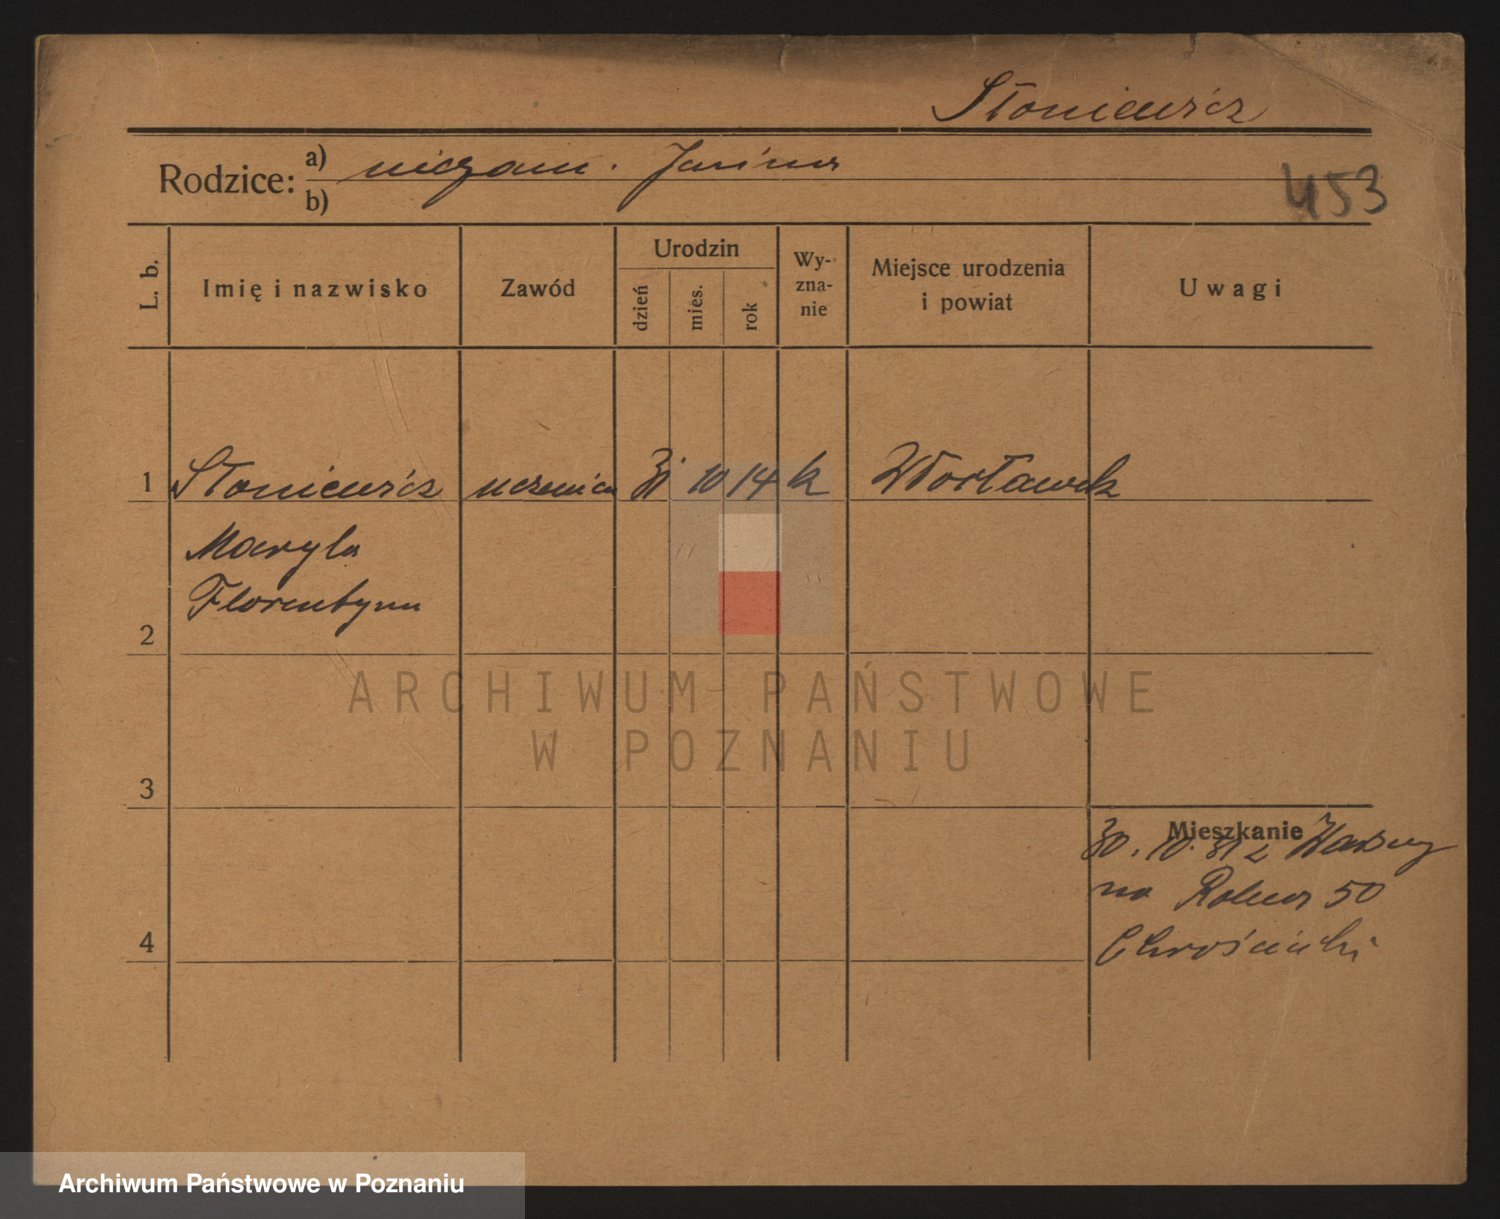 Słoniewicz
Rodzice: a) niezam. Janina
b)
453
L. b. Imię i nazwisko Zawód Urodzin dzień mies. rok Wyzna-nie Miejsce urodzenia i powiat Uwagi
1 Słoniewicz uczenica 31 10 14 k Włocławek
Maryla
Florentyna
2
3
4
Mieszkanie
30. 10. 31 z
na 50
ARCHIWUM PAŃSTWOWE
W POZNANIU
Archiwum Państwowe w Poznaniu